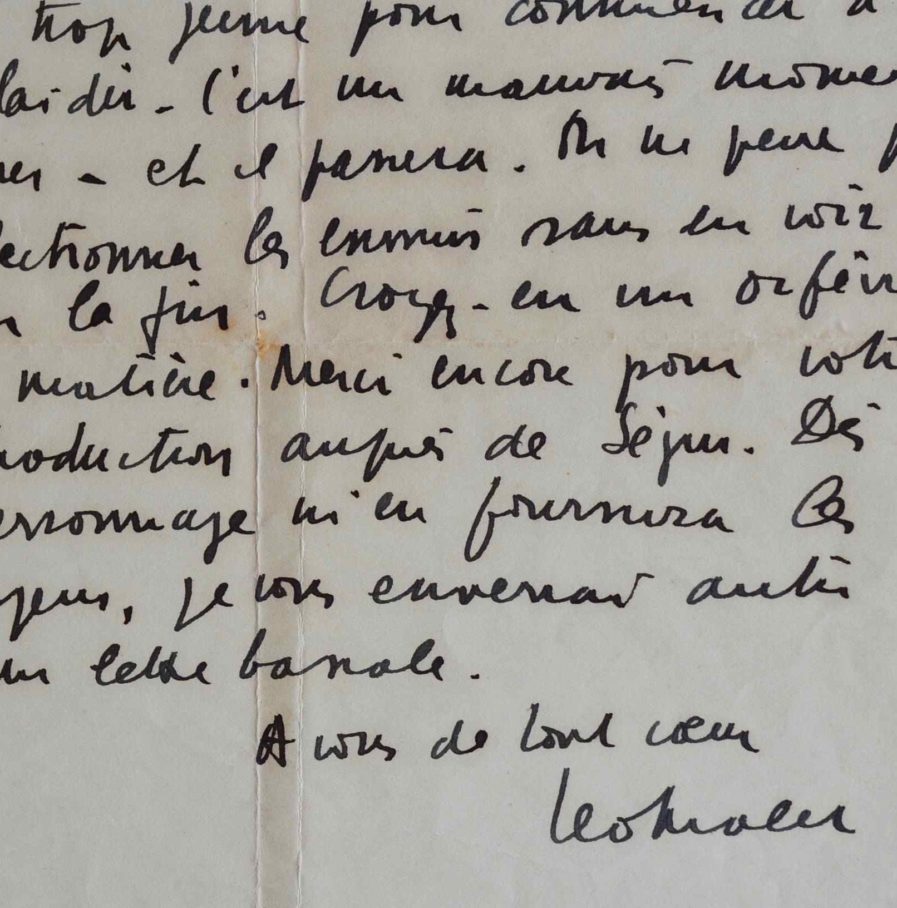 trop jeune pour commencer à
laidir - C'est un mauvais momen
er - et il passera. On ne peut p
ectionner les ennemis sans en voir
la fin. Croyez-en un orfèvr
matière. Merci encore pour votr
roduction auprès de Ségur. Dès
ersonnage m'en fournira les
je vous enverrai autre
un lettre banale.
A vous de tout cœur
Leo Malet